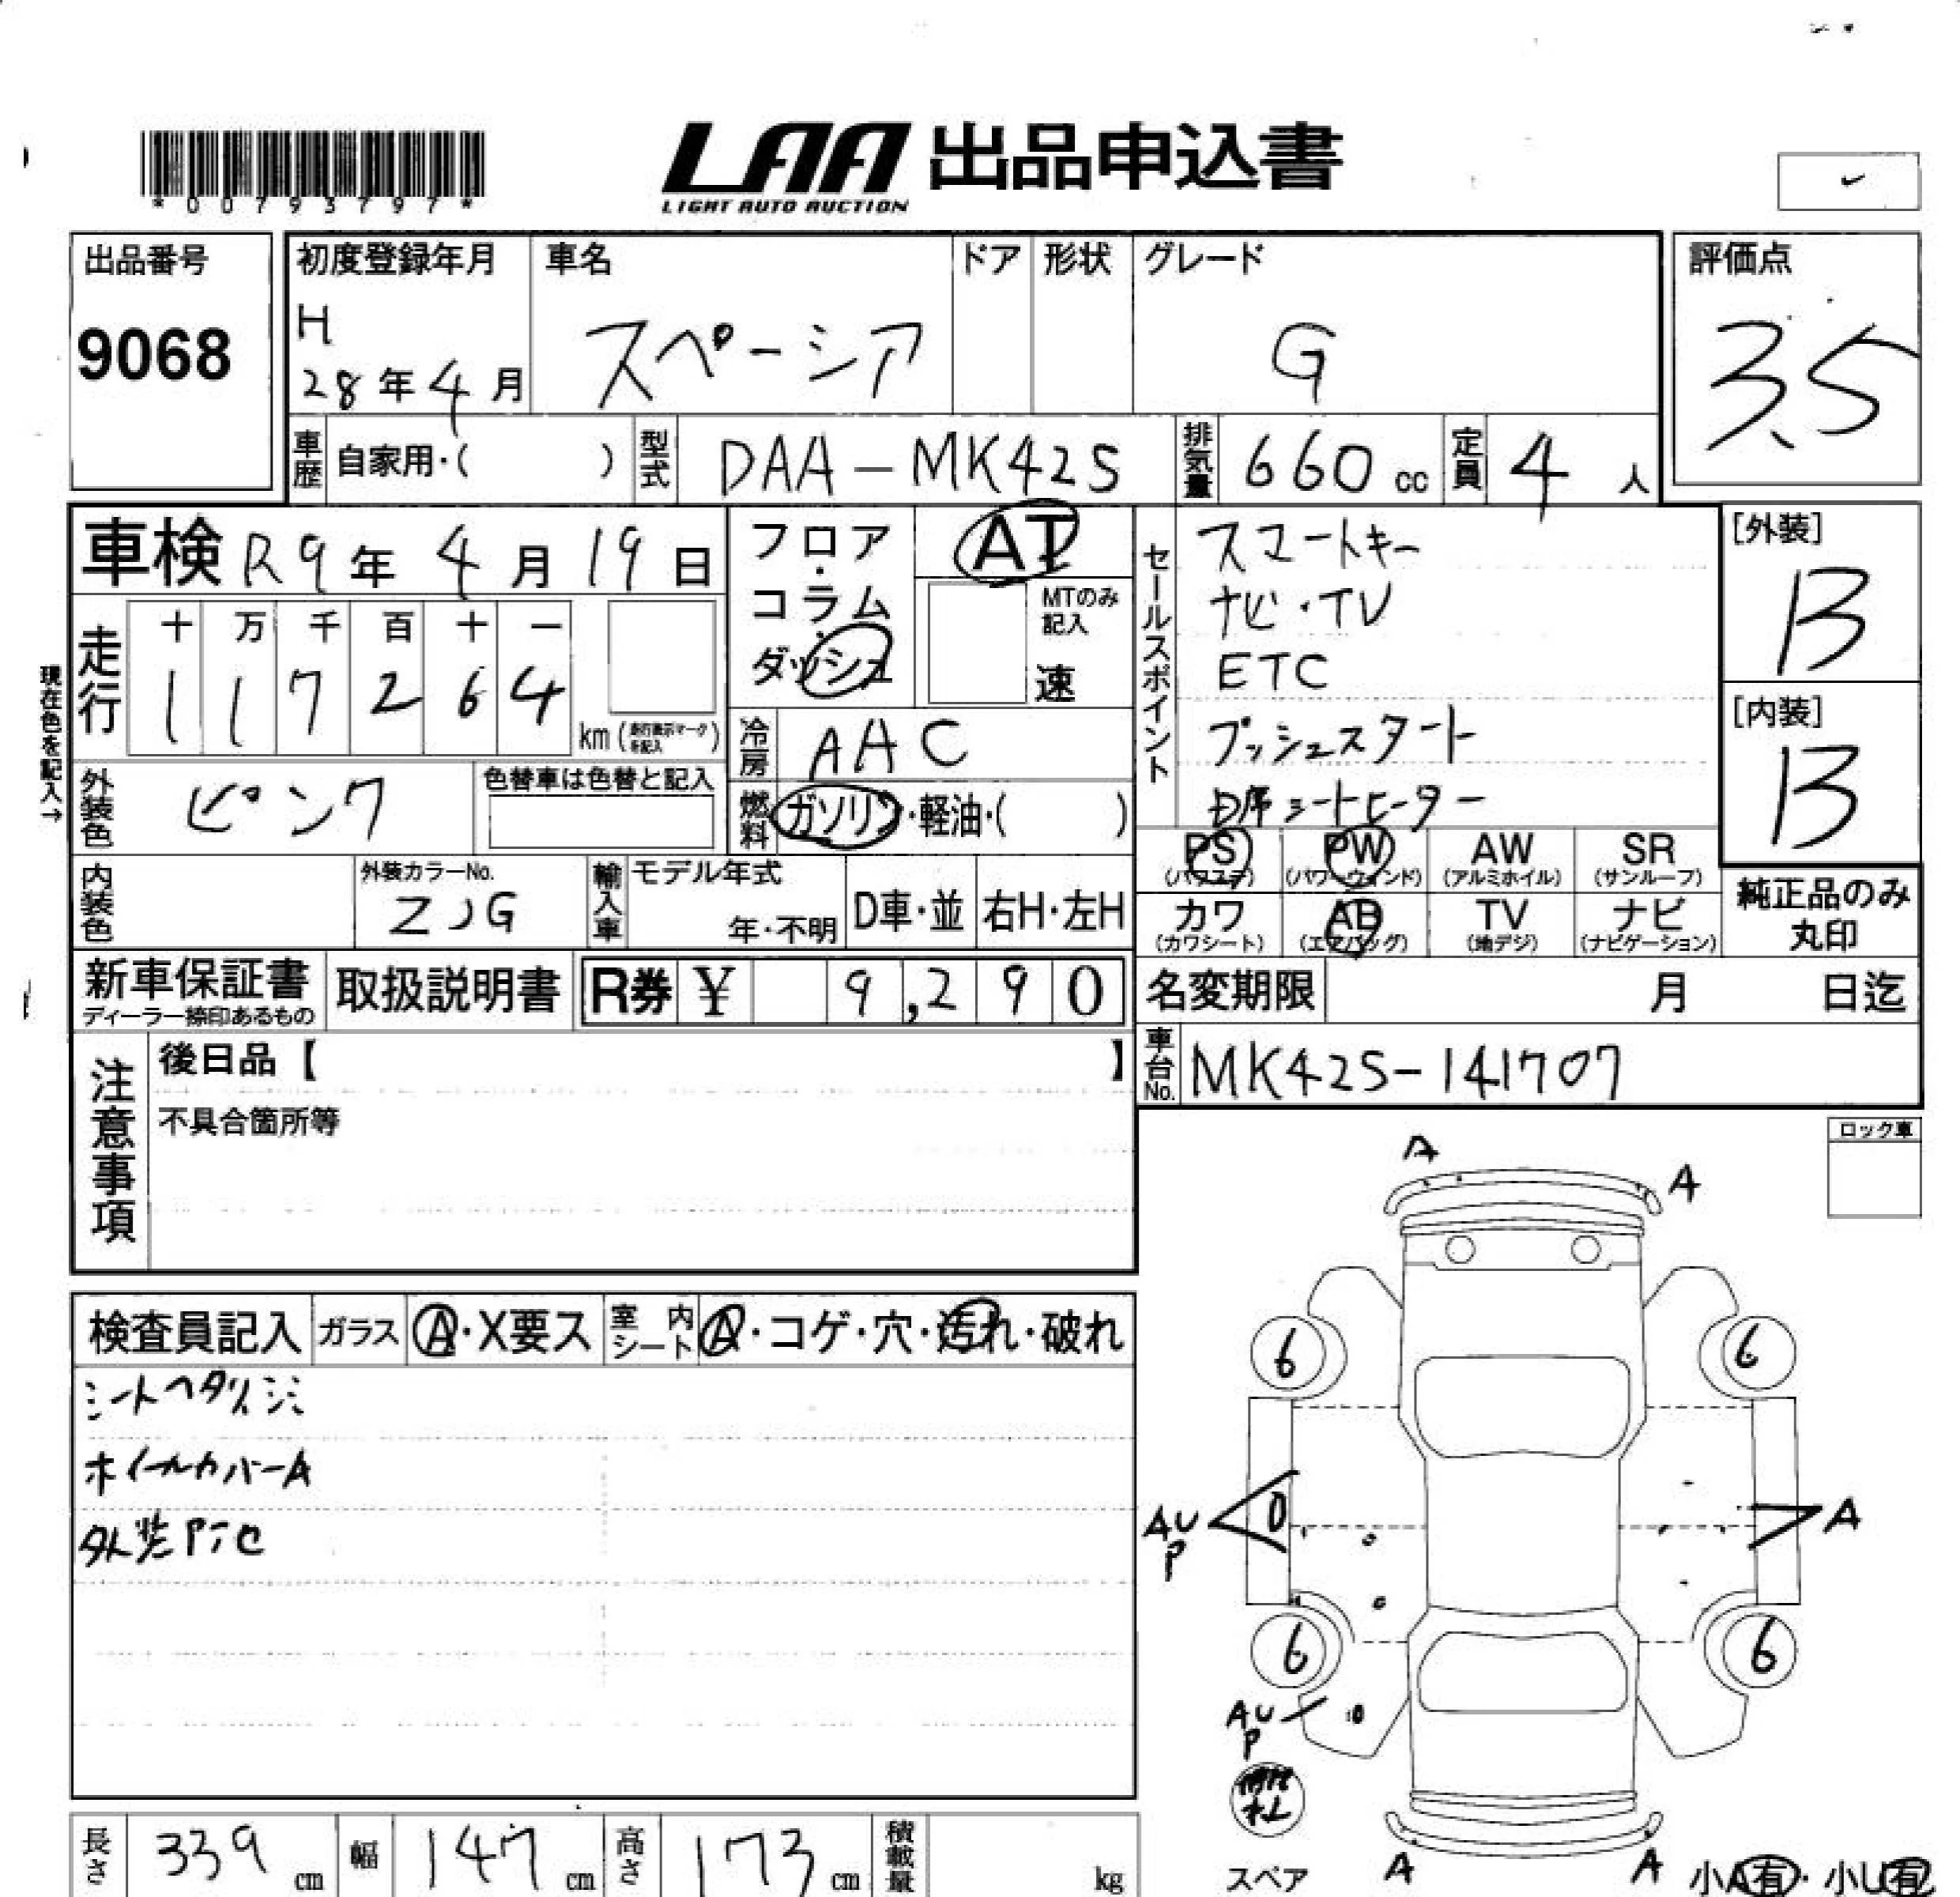 *00793797*
LAA 出品申込書
LIGHT AUTO AUCTION
出品番号
9068
初度登録年月
H
28年4月
車名
スペーシア
ドア
形状
グレード
G
評価点
3.5
車歴
自家用・( )
型式
DAA-MK42S
排気量
660 cc
定員
4人
車検 R9年4月19日
フロア・コラム・ダッシュ
AT
MTのみ記入
速
セールスポイント
スマートキー
ナビ・TV
ETC
プッシュスタート
D席シートヒーター
[外装]
B
[内装]
B
現在色を記入→
走行
十 万 千 百 十 一
1 1 7 2 6 4
km (走行表示マークを記入)
冷房
AAC
外装色
ピンク
色替車は色替と記入
燃料
ガソリン・軽油・( )
PS
(パワステ)
PW
(パワーウィンド)
AW
(アルミホイル)
SR
(サンルーフ)
カワ
(カワシート)
AB
(エアバッグ)
TV
(地デジ)
ナビ
(ナビゲーション)
純正品のみ
丸印
内装色
外装カラーNo.
ZJG
輸入車
モデル年式
年・不明
D車・並
右H・左H
新車保証書
ディーラー捺印あるもの
取扱説明書
R券 ¥ 9,290
名変期限
月 日迄
車台No.
MK42S-141707
注意事項
後日品【 】
不具合箇所等
ロック車
A
A
6
6
AU
P
A
6
6
AU
P
スペア
A
A
小A有・小U有
検査員記入
ガラス
A・X要ス
室内シート
A・コゲ・穴・汚れ・破れ
シートヘタリ、シミ
ホイールカバーA
長さ
339 cm
幅
147 cm
高さ
173 cm
積載量
kg